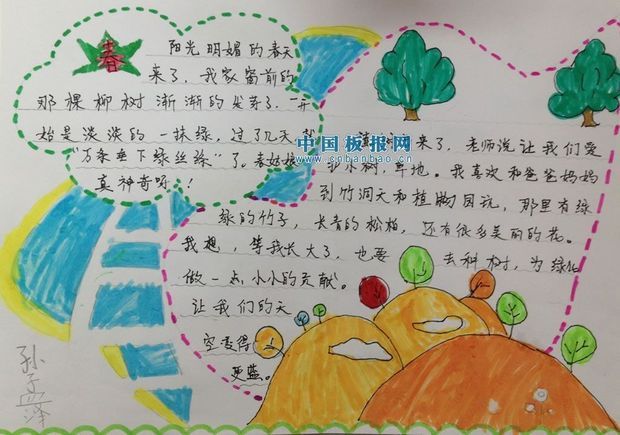 春
阳光明媚的春天
来了，我家窗前的
那棵柳树渐渐的发芽了，一开
始是淡淡的一抹绿，过了几天就
“万条垂下绿丝绦”了。春姑娘
真神奇呀！
中国板报网
www.cnbanbao.cn
来了，老师说让我们爱
小树，草地。我喜欢和爸爸妈妈
到竹洞天和植物园玩，那里有绿
绿的竹子，长青的松柏，还有很多美丽的花。
我想，等我长大了，也要去种树，为绿化
做一点小小的贡献。
让我们的天
空变得
更蓝。
孙孟泽